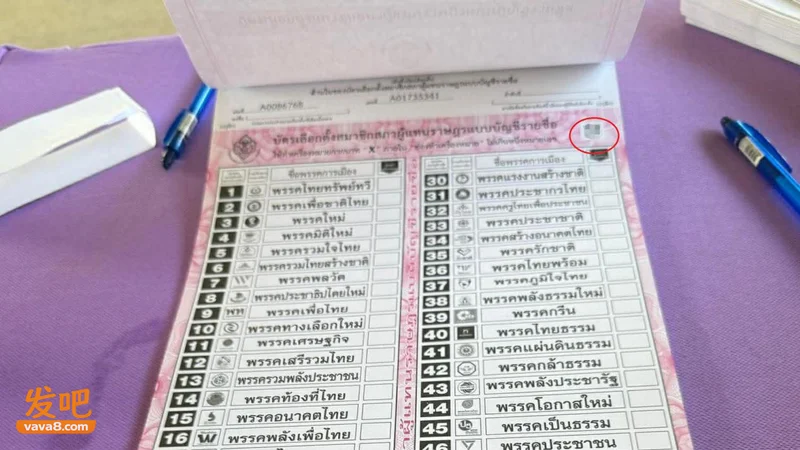 A0086768
A01735341
บัตรเลือกตั้งสมาชิกสภาผู้แทนราษฎรแบบบัญชีรายชื่อ
ชื่อพรรคการเมือง
1 พรรคไทยทรัพย์ทวี
2 พรรคเพื่อชาติไทย
3 พรรคใหม่
4 พรรคมิติใหม่
5 พรรครวมใจไทย
6 พรรครวมไทยสร้างชาติ
7 พรรคพลวัต
8 พรรคประชาธิปไตยใหม่
9 พท พรรคเพื่อไทย
10 พรรคทางเลือกใหม่
11 พรรคเศรษฐกิจ
12 พรรคเสรีรวมไทย
13 พรรครวมพลังประชาชน
14 พรรคท้องที่ไทย
15 พรรคอนาคตไทย
16 พรรคพลังเพื่อไทย
ชื่อพรรคการเมือง
30 พรรคแรงงานสร้างชาติ
31 พรรคประชากรไทย
32 พรรคครูไทยเพื่อประชาชน
33 พรรคประชาชาติ
34 พรรคสร้างอนาคตไทย
35 พรรครักชาติ
36 พรรคไทยพร้อม
37 พรรคภูมิใจไทย
38 พรรคพลังธรรมใหม่
39 พรรคกรีน
40 พรรคไทยธรรม
41 พรรคแผ่นดินธรรม
42 พรรคกล้าธรรม
43 พรรคพลังประชารัฐ
44 พรรคโอกาสใหม่
45 พรรคเป็นธรรม
46 พรรคประชาชน
发吧
vava8.com